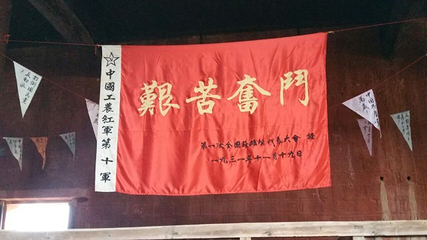 中國工農紅軍第十軍
艱苦奮鬥
第一次全國蘇維埃代表大會
一九三一年十一月十九日